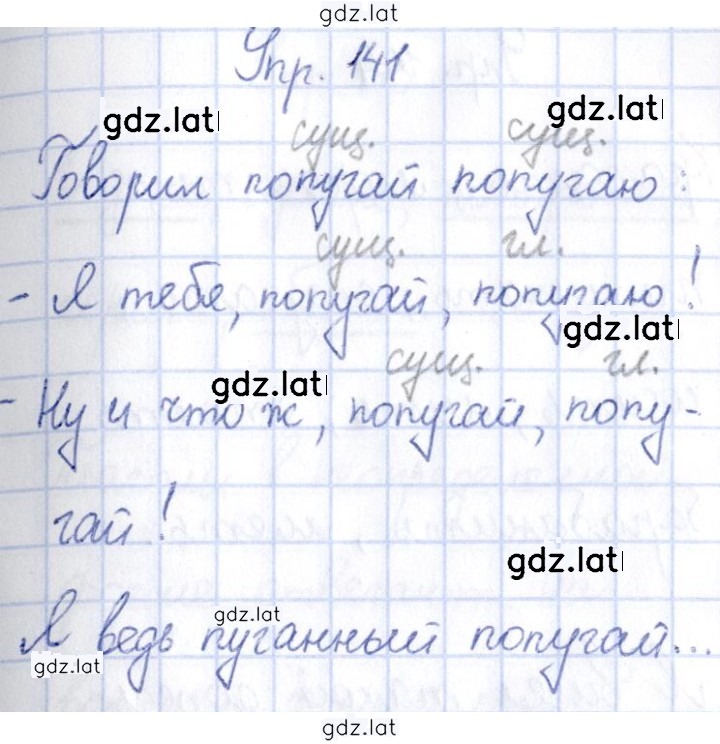 gdz.lat
Упр. 141
gdz.lat gdz.lat
сущ. сущ.
Говорил попугай попугаю:
сущ. гл.
- Я тебя, попугай, попугаю!
gdz.lat
сущ. гл.
gdz.lat
- Ну и что ж, попугай, попу-
гай!
gdz.lat
gdz.lat
Я ведь пуганный попугай...
gdz.lat
gdz.lat